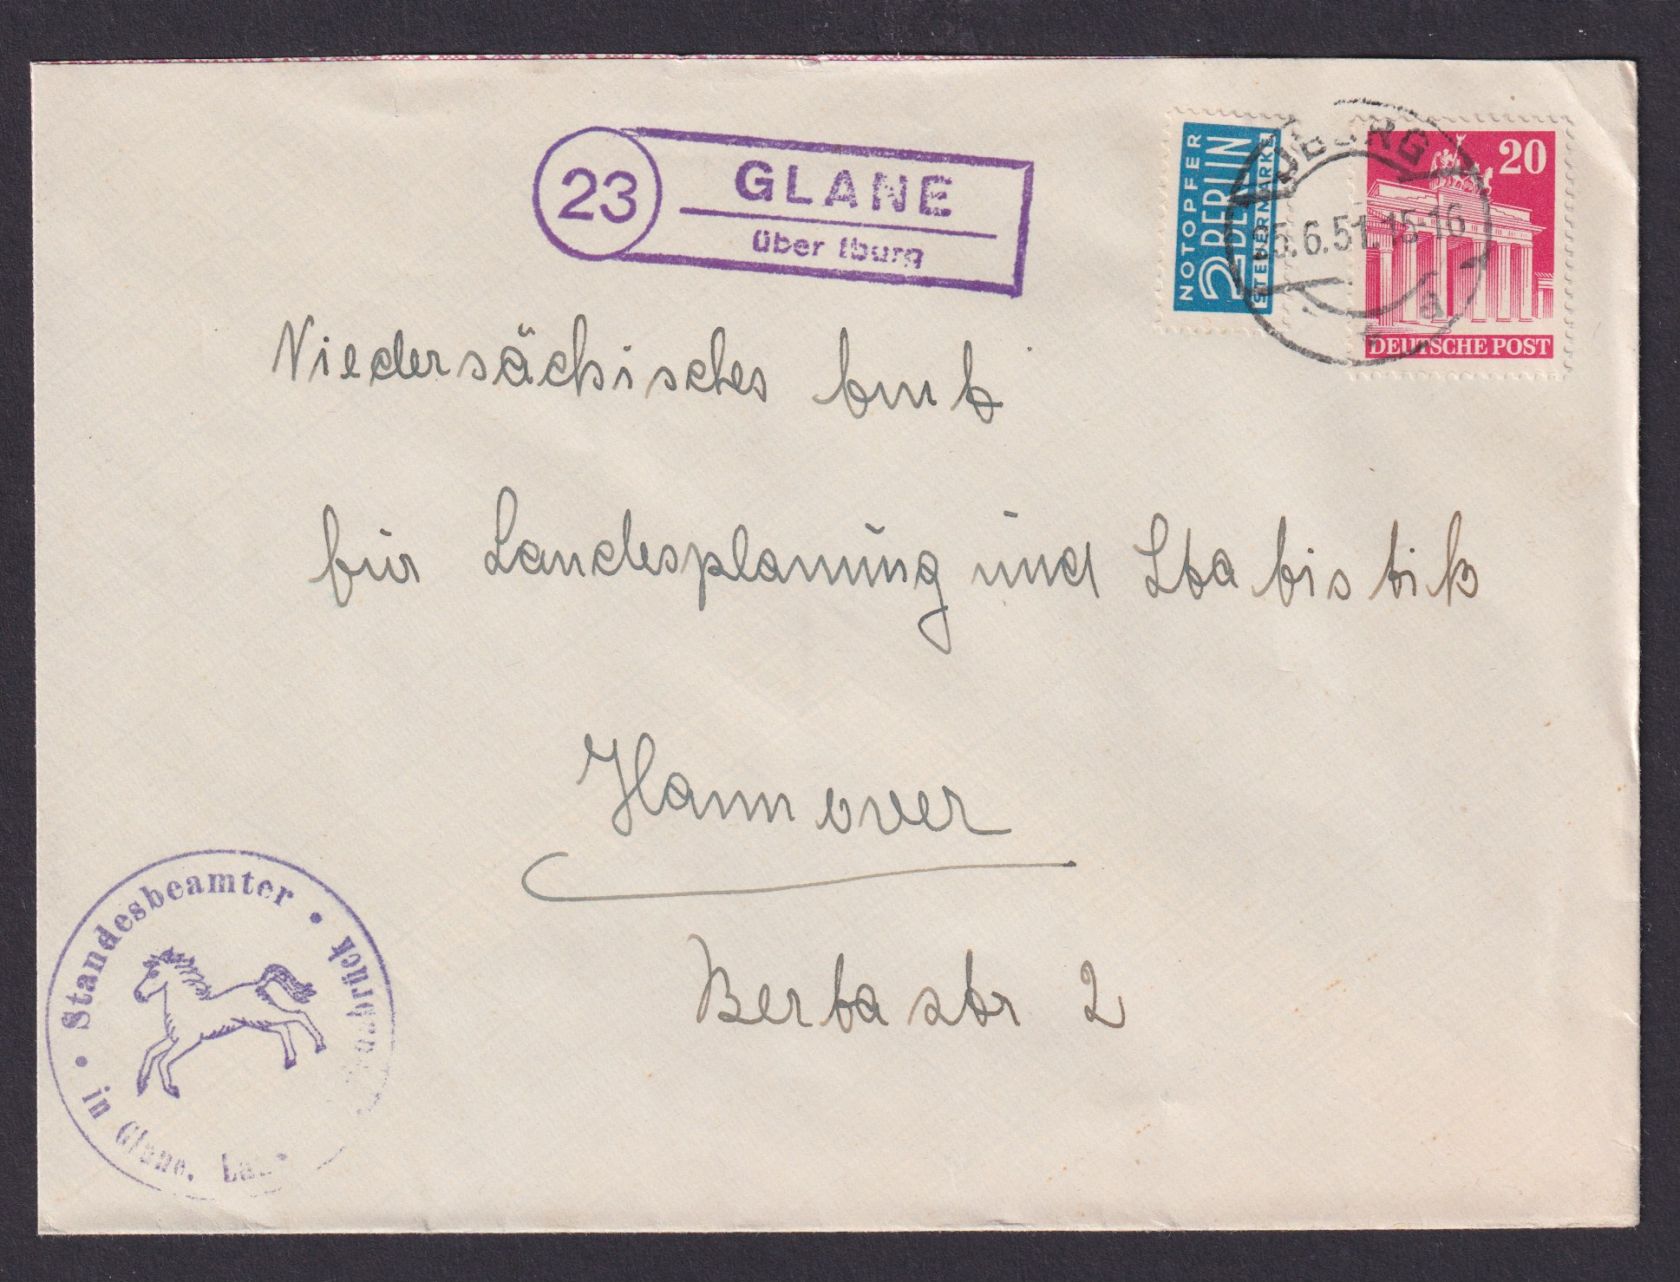 23
GLANE
über Iburg
NOTOPFER
2 BERLIN
STEUERMARKE
20
DEUTSCHE POST
6.51.15-16
a
Niedersächsisches Amt
für Landesplanung und Statistik
Hannover
Bertastr 2
• Standesbeamter •
in Glane.